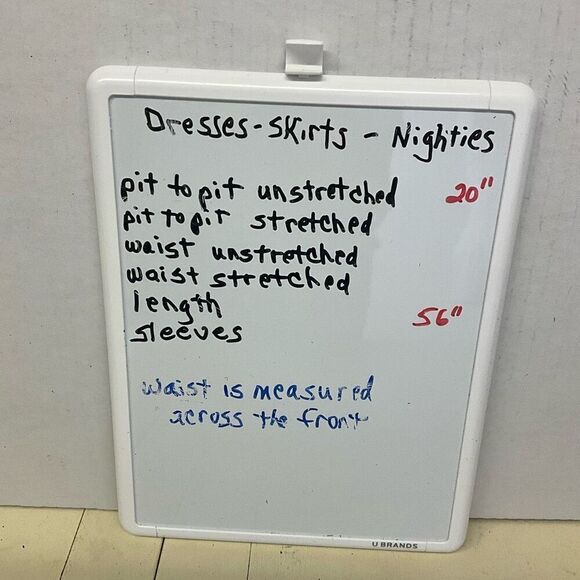 Dresses - Skirts - Nighties
pit to pit unstretched 20"
pit to pit stretched
waist unstretched
waist stretched
length 56"
sleeves
waist is measured
across the front
U BRANDS